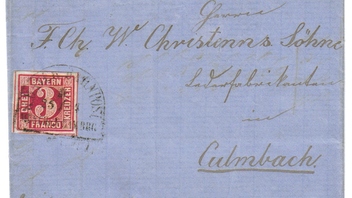 Herren
F. Ch. W. Christinns Söhne
Lederfabrikanten
in
Culmbach.
BAYERN
DREI
3
KREUZER
FRANCO